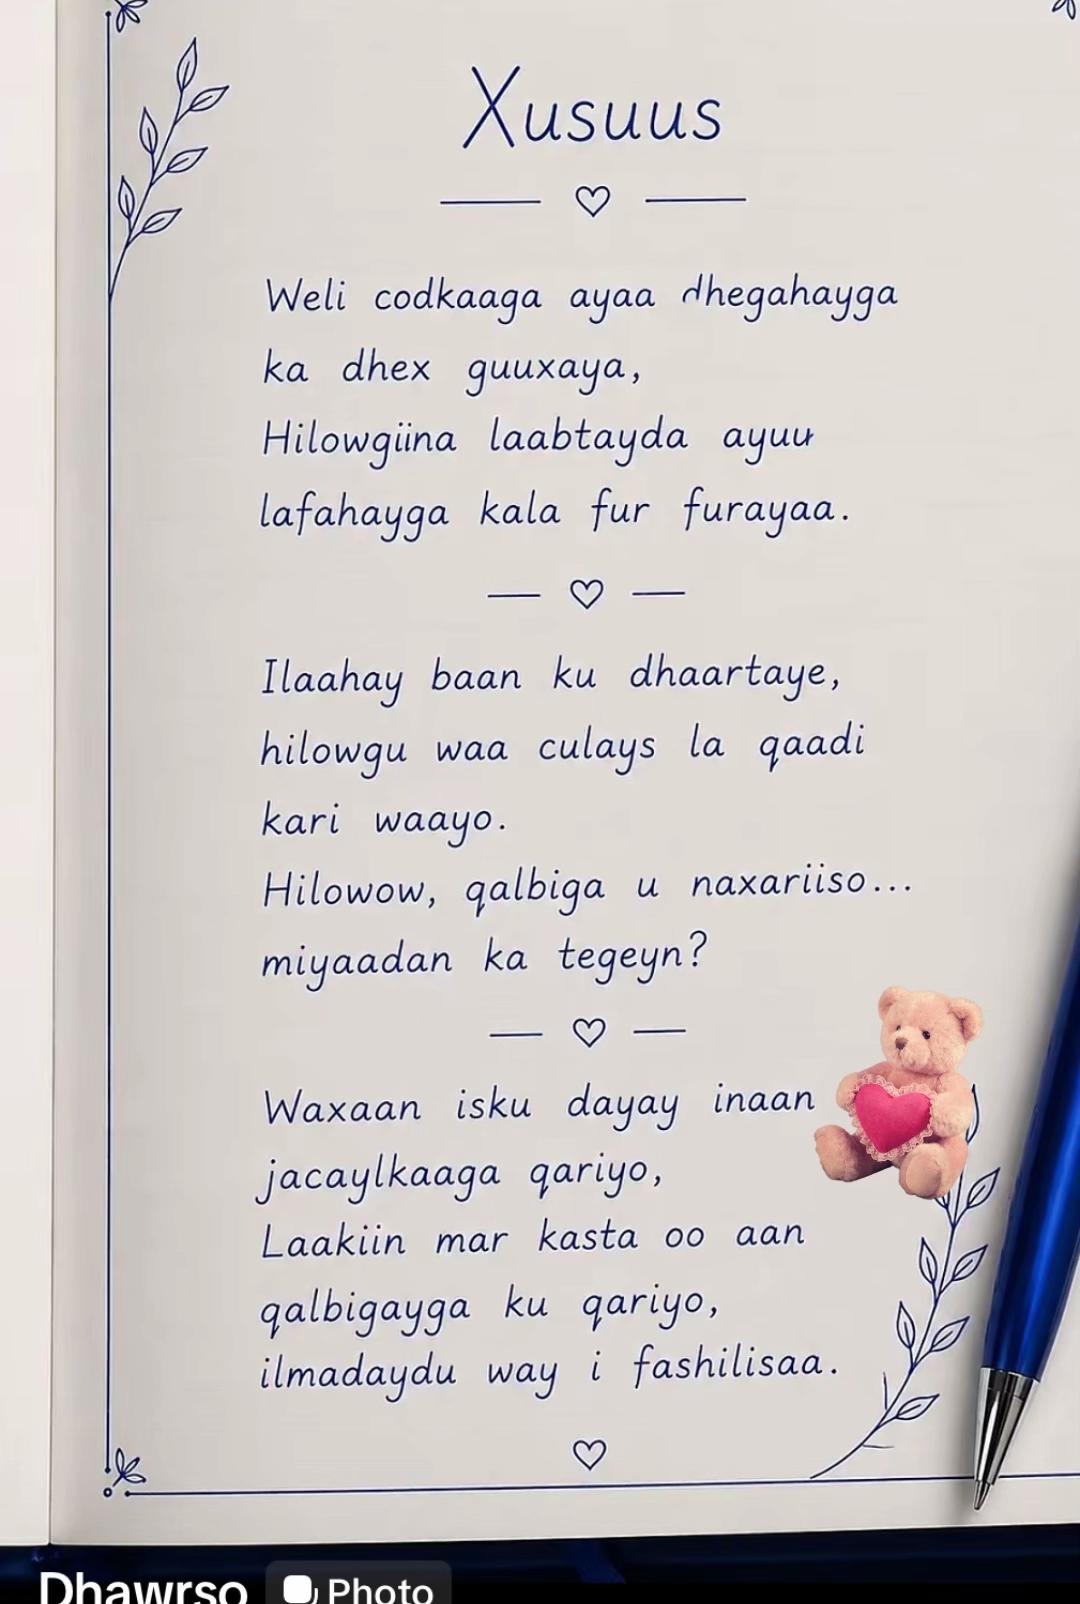 Xusuus
Weli codkaaga ayaa dhegahayga
ka dhex guuxaya,
Hilowgiina laabtayda ayuu
lafahayga kala fur furayaa.
Ilaahay baan ku dhaartaye,
hilowgu waa culays la qaadi
kari waayo.
Hilowow, qalbiga u naxariiso...
miyaadan ka tegeyn?
Waxaan isku dayay inaan
jacaylkaaga qariyo,
Laakiin mar kasta oo aan
qalbigayga ku qariyo,
ilmadaydu way i fashilisaa.
Dhawrso Photo